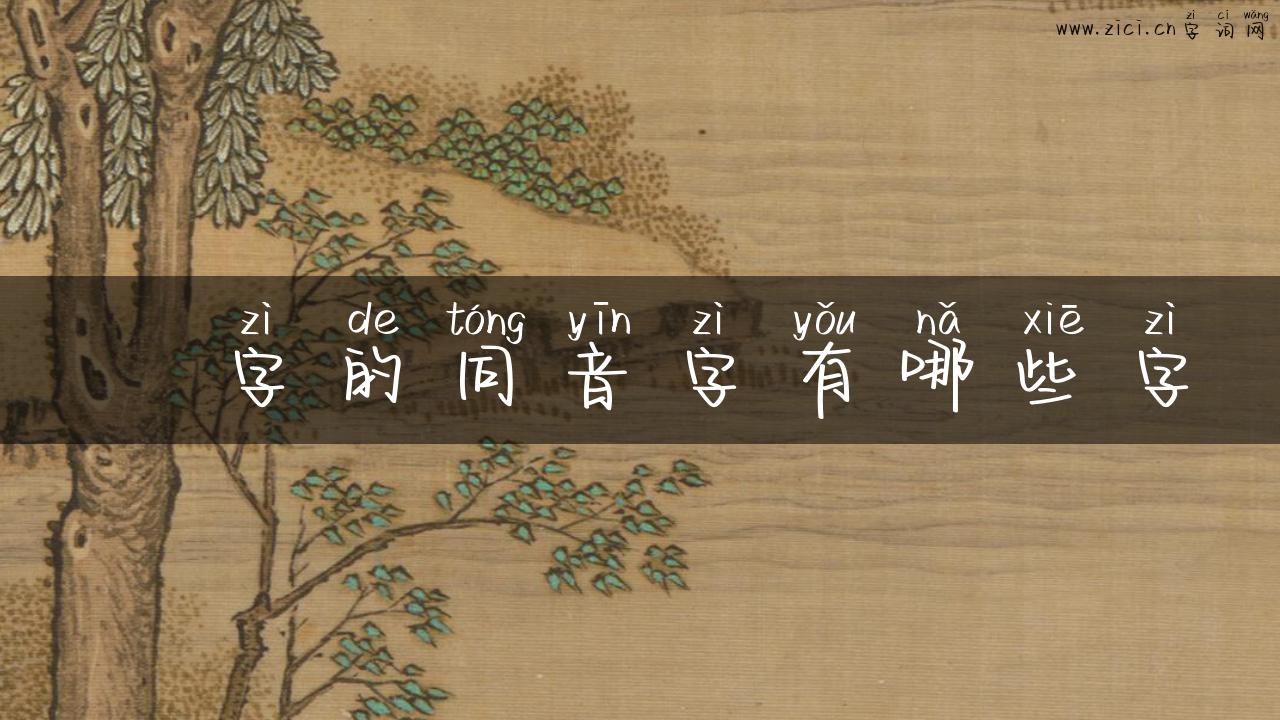 zì cí wǎng
www.zici.cn 字词网
zì de tóng yīn zì yǒu nǎ xiē zì
字的同音字有哪些字